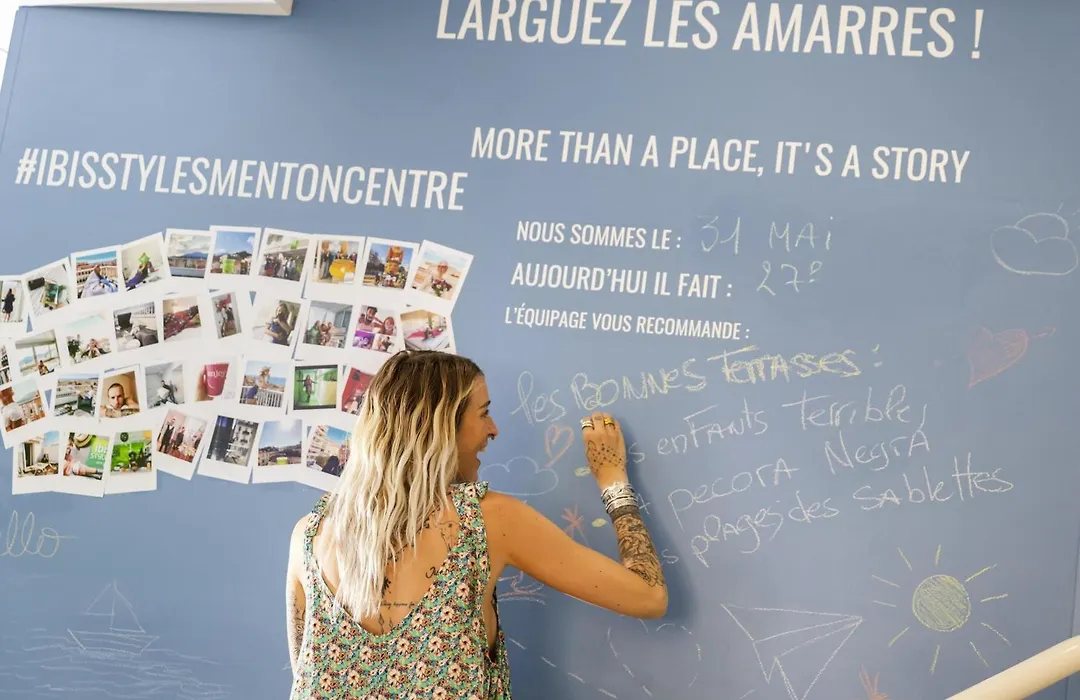 LARGUEZ LES AMARRES !
MORE THAN A PLACE, IT'S A STORY
#IBISSTYLESMENTONCENTRE
NOUS SOMMES LE : 31 MAi
AUJOURD'HUI IL FAIT : 27º
L'ÉQUIPAGE VOUS RECOMMANDE :
les BONNES TerrASSES :
enfants Terribles
pecora NegrA
plages des sablettes
enjoy